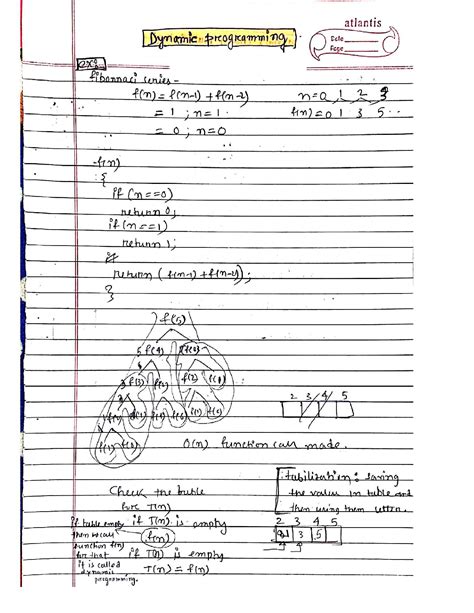 atlantis
Date
Page
Dynamic programming.
ex:-
fibonnaci series -
f(n) = f(n-1) + f(n-2)
= 1 ; n=1
= 0 ; n=0
n=0 1 2 3
f(n)=0 1 3 5 ..
f(n)
{
if (n==0)
return 0;
if (n==1)
return 1;
return ( f(n-1) + f(n-2) );
}
f(5)
5 f(4) f(3)
3 f(3) f(2) f(2) f(1)
f(2) f(1) f(1) f(0) f(1) f(0)
f(1) f(0)
2 3 4 5
O(n) function call made.
tabilization : saving
the value in table and
then using them letter.
2 3 4 5
2 3 5
Check the table
for T(n)
if T(n) is empty
f(n)
if T(n) is empty
T(n) = f(n)
If table empty
then recall
function f(n)
for that
it is called
dynamic
programming.